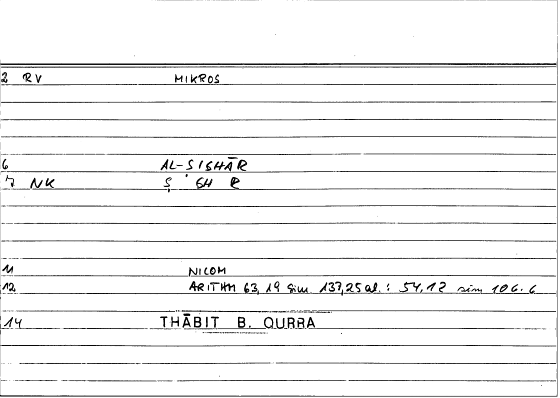 2 RV MIKROS
6 AL-SIGHĀR
7 NK Ṣ ' GH R
11 NICOM
12 ARITHM 63,19 sim. 137,25 al.: 54,12 sim 106.6
14 THĀBIT B. QURRA